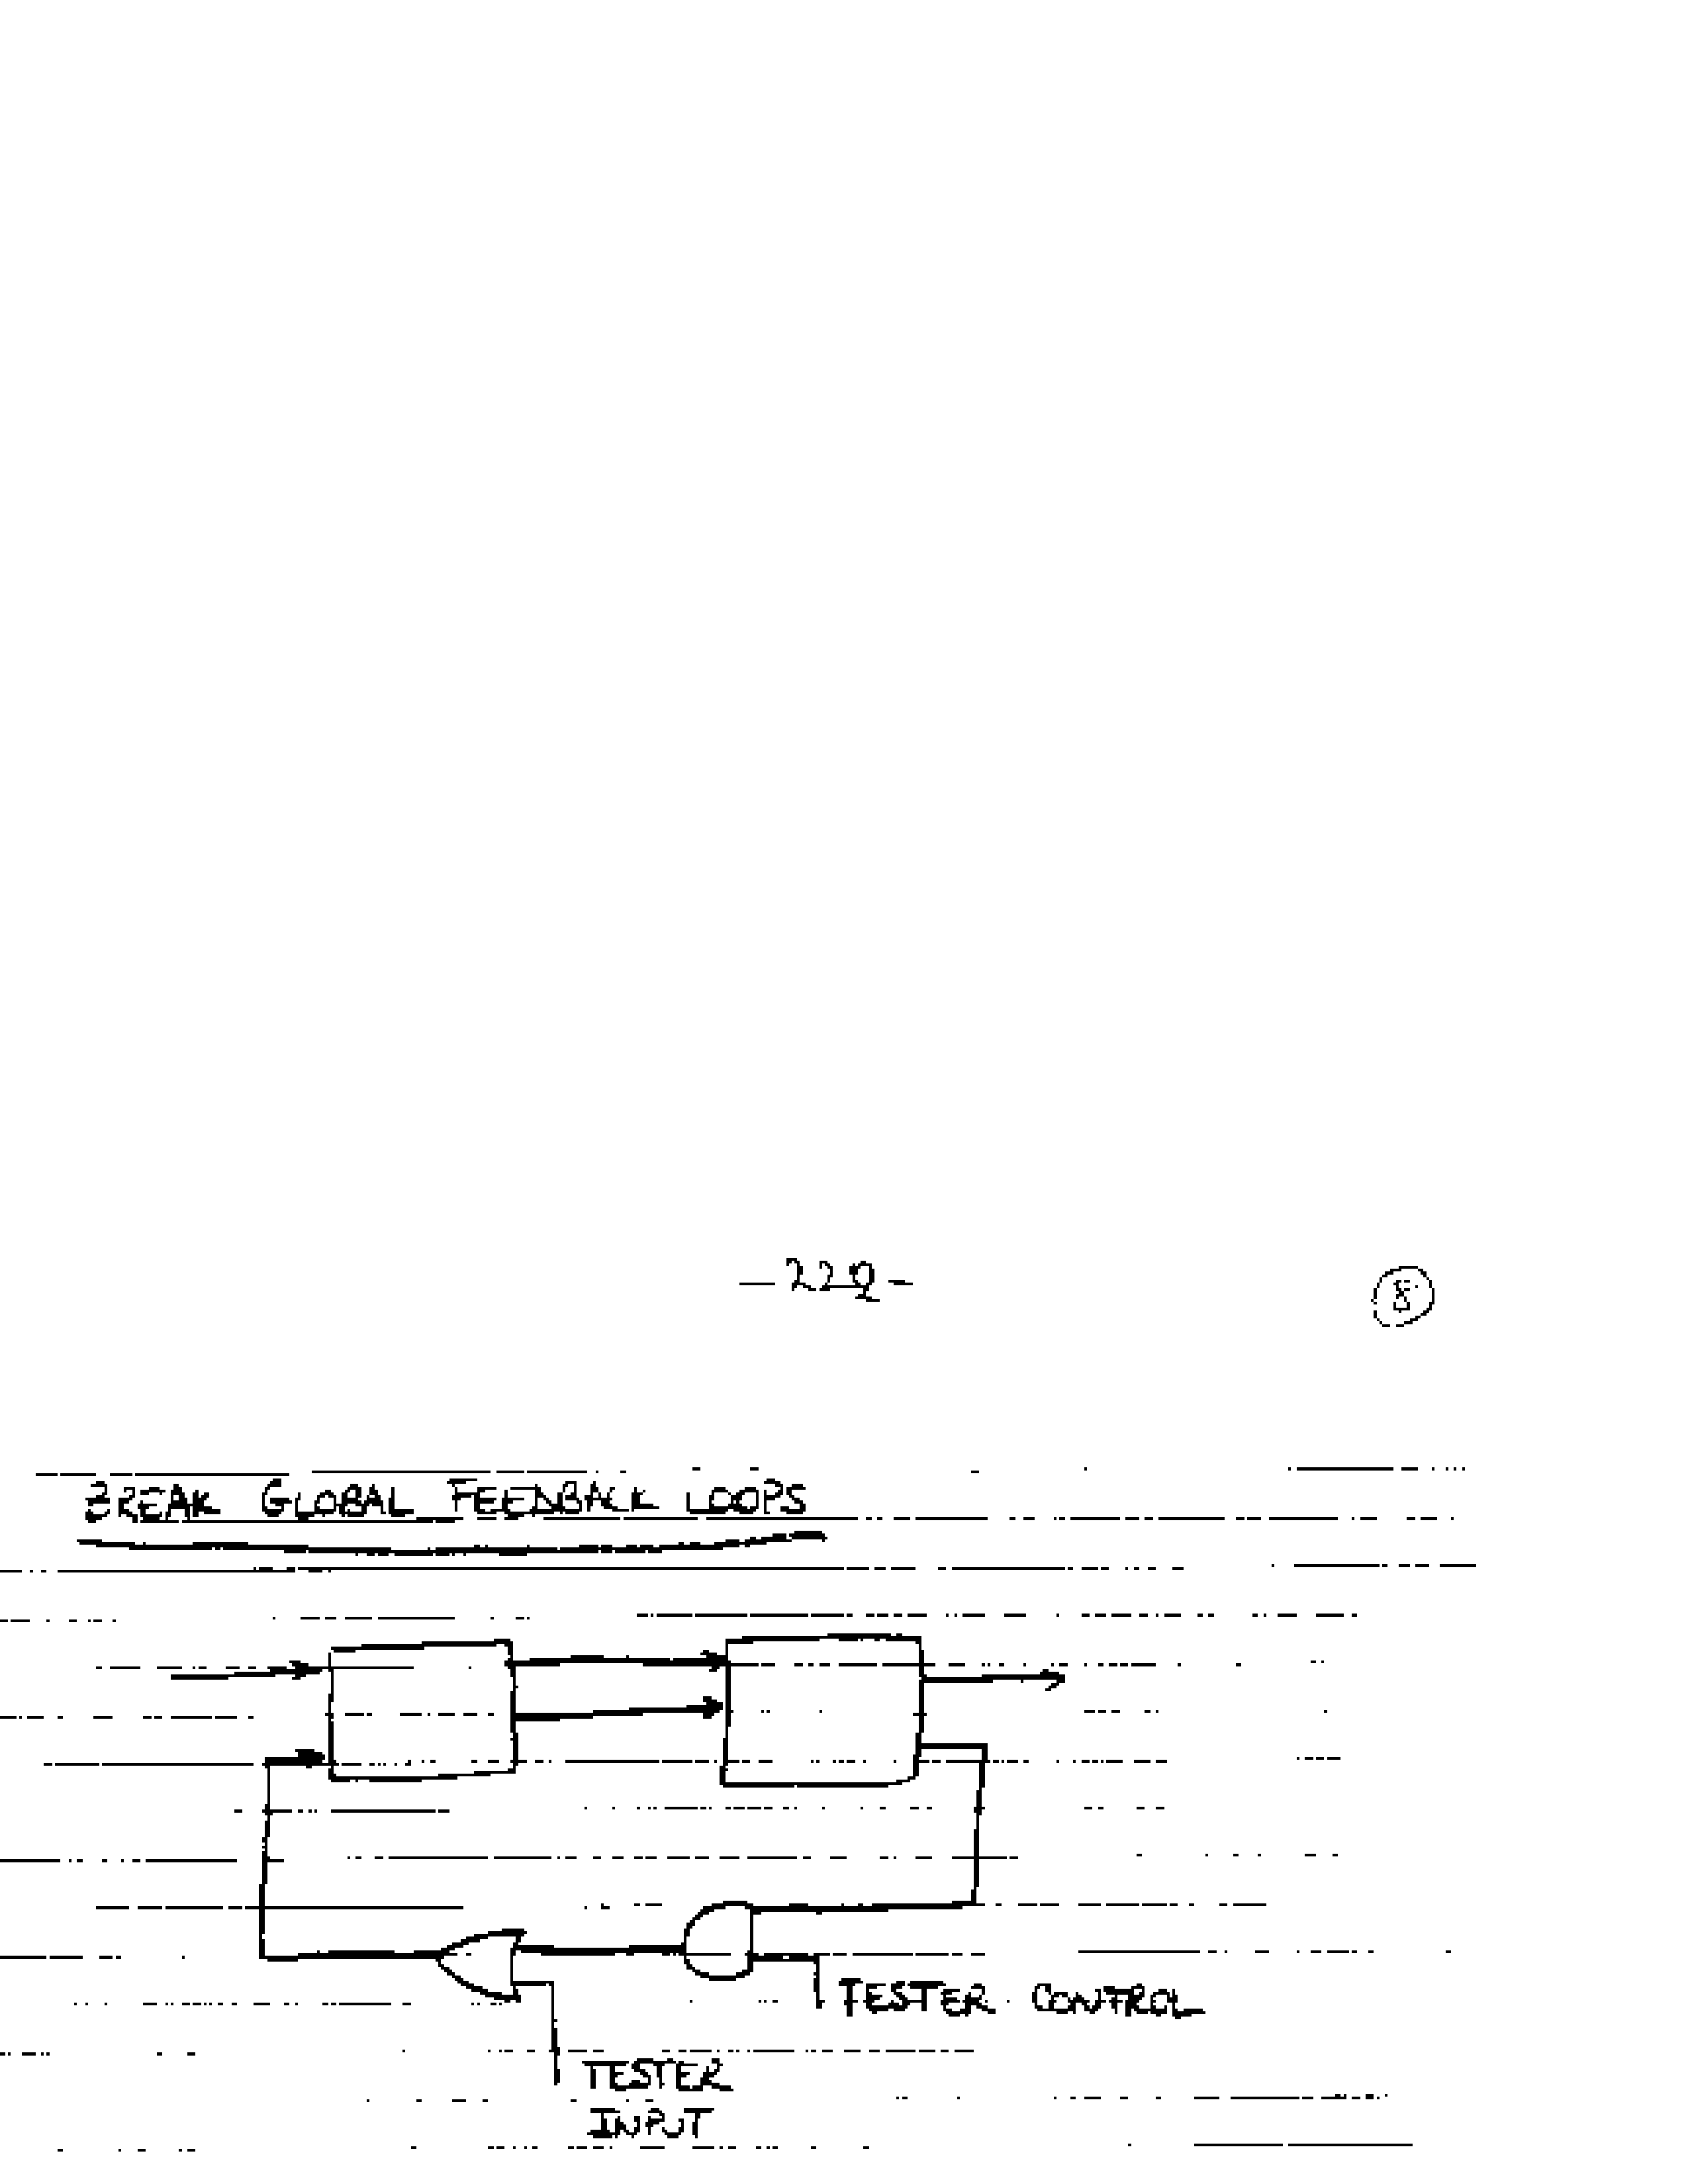 -222-
8
BREAK GLOBAL FEEDBACK LOOPS
TESTER CONTROL
TESTER
INPUT